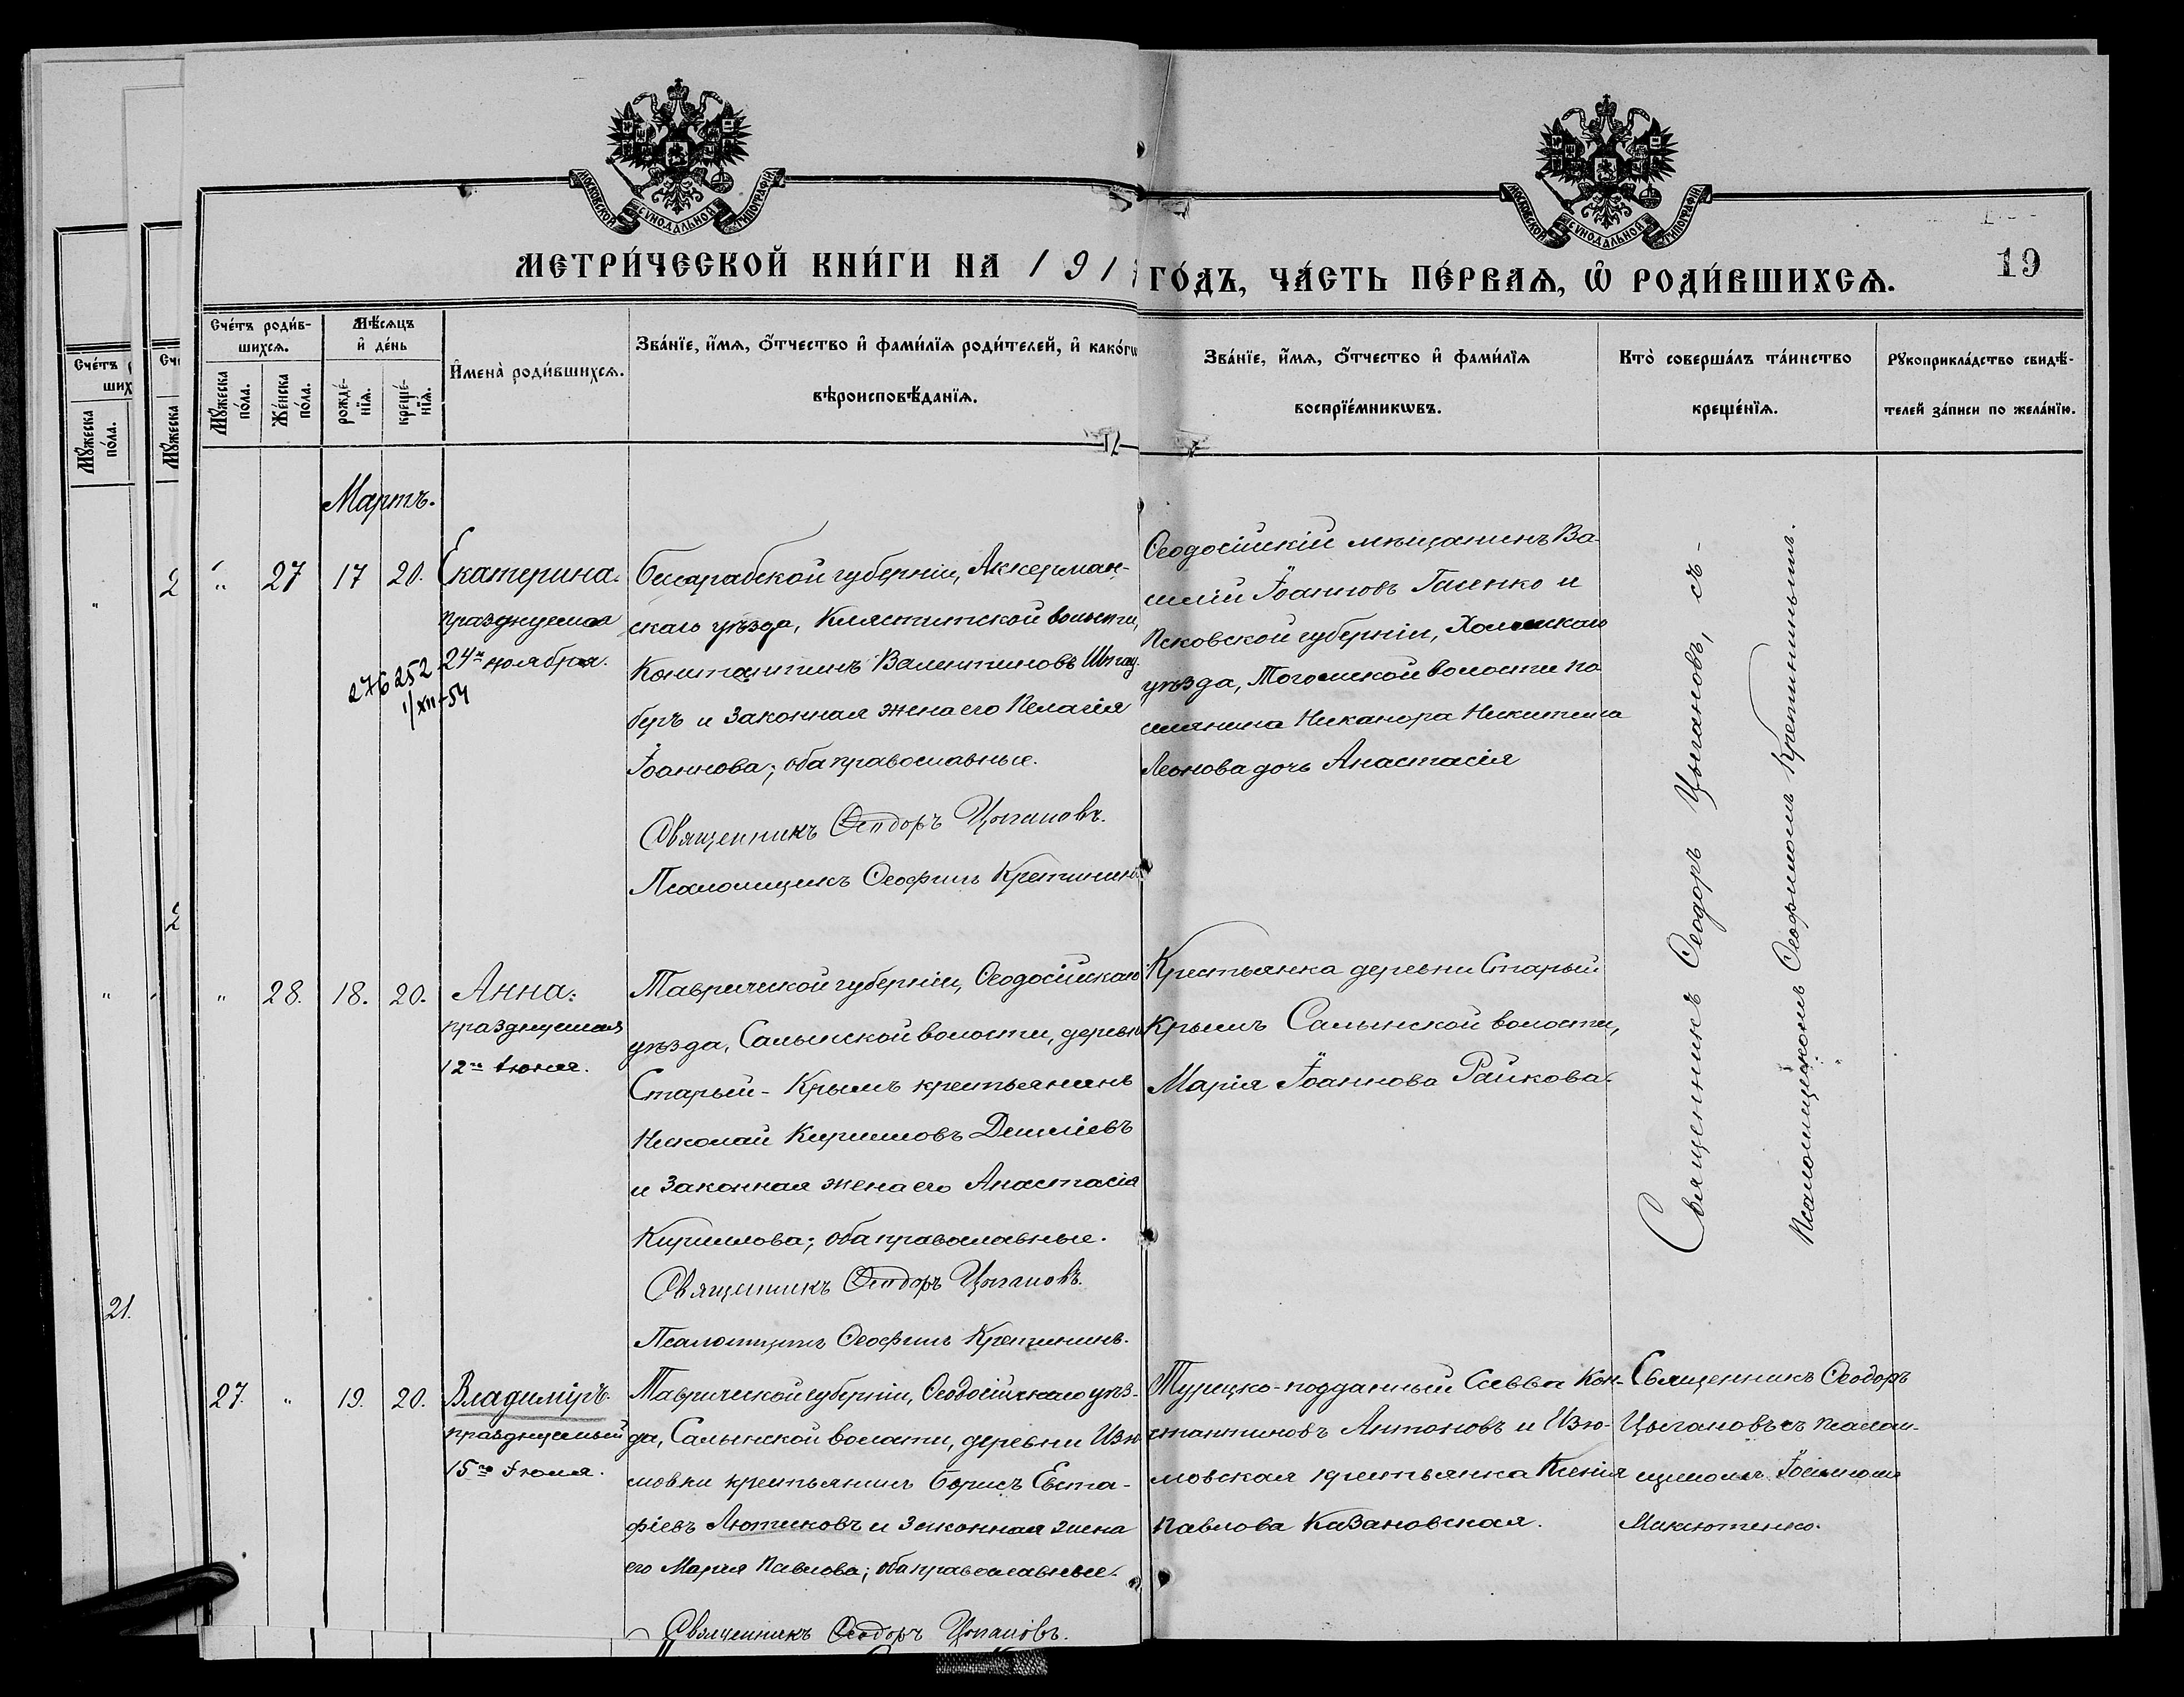 МОСКОВСКОЙ СѴНОДАЛЬНОЙ ТИПОГРАФІИ
МОСКОВСКОЙ СѴНОДАЛЬНОЙ ТИПОГРАФІИ
МЕТРИ́ЧЕСКОЙ КНИ́ГИ НА 191
ГО́ДЪ, ЧА́СТЬ ПЕ́РВАѦ, Ѡ҆ РОДИ́ВШИХСѦ.
19
Сче́тъ роди́в-
шихсѧ.
Мѣ́сѧцъ
и҆ де́нь
Мꙋ́жеска
по́ла.
Же́нска
по́ла.
рожде́-
нїѧ.
креще́-
нїѧ.
И҆мена̀ роди́вшихсѧ.
Зва́нїе, и҆́мѧ, ѻ҆́тчество и҆ фами́лїѧ роди́телей, и҆ како́гѡ
вѣроисповѣ́данїѧ.
Зва́нїе, и҆́мѧ, ѻ҆́тчество и҆ фами́лїѧ
воспрїе́мникѡвъ.
Кто̀ соверша́лъ та́инство
креще́нїѧ.
Рꙋкоприкла́дство свидѣ́-
телей за́писи по жела́нїю.
Мартъ.
" 27 17 20. Екатерина.
празднуемая
24го ноября.
276252
1/XII-54
Бессарабской губерніи, Аккерман-
скаго уѣзда, Кляститской волости,
Константинъ Валентиновъ
и законная жена его Пелагія
Іоаннова; оба православные.
Священникъ Ѳеодоръ Цыгановъ.
Псаломщикъ Ѳеофилъ Кретининъ.
Ѳеодосійскій мѣщанинъ Ва-
силій Іоанновъ и
Псковской губерніи, Холмскаго
уѣзда, волости по-
селянина Никанора Никитина
Леонова дочь Анастасія
Священникъ Ѳеодоръ Цыгановъ, съ
псаломщикомъ Ѳеофиломъ Кретининымъ.
" 28. 18. 20. Анна.
празднуемая
12го Іюня.
Таврической губерніи, Ѳеодосійскаго
уѣзда, Салынской волости, деревни
Старый-Крымъ крестьянинъ
Николай Кирилловъ
и законная жена его Анастасія
Кириллова; оба православные.
Священникъ Ѳеодоръ Цыгановъ.
Псаломщикъ Ѳеофилъ Кретининъ.
Крестьянка деревни Старый
Крымъ Салынской волости,
Марія Іоаннова Райкова.
27. " 19. 20. Владиміръ.
празднуемый
15го Іюля.
Таврической губерніи, Ѳеодосійскаго уѣз-
да, Салынской волости, деревни Изю-
мовки крестьянинъ Борисъ Евста-
фіевъ Лютиковъ и законная жена
его Марія Павлова; оба православные.
Священникъ Ѳеодоръ Цыгановъ.
Турецко-подданный Савва Кон-
стантиновъ Антоновъ и Изю-
мовская крестьянка Ксенія
Павлова Казановская.
Священникъ Ѳеодоръ
Цыгановъ съ псалом-
щикомъ
21.